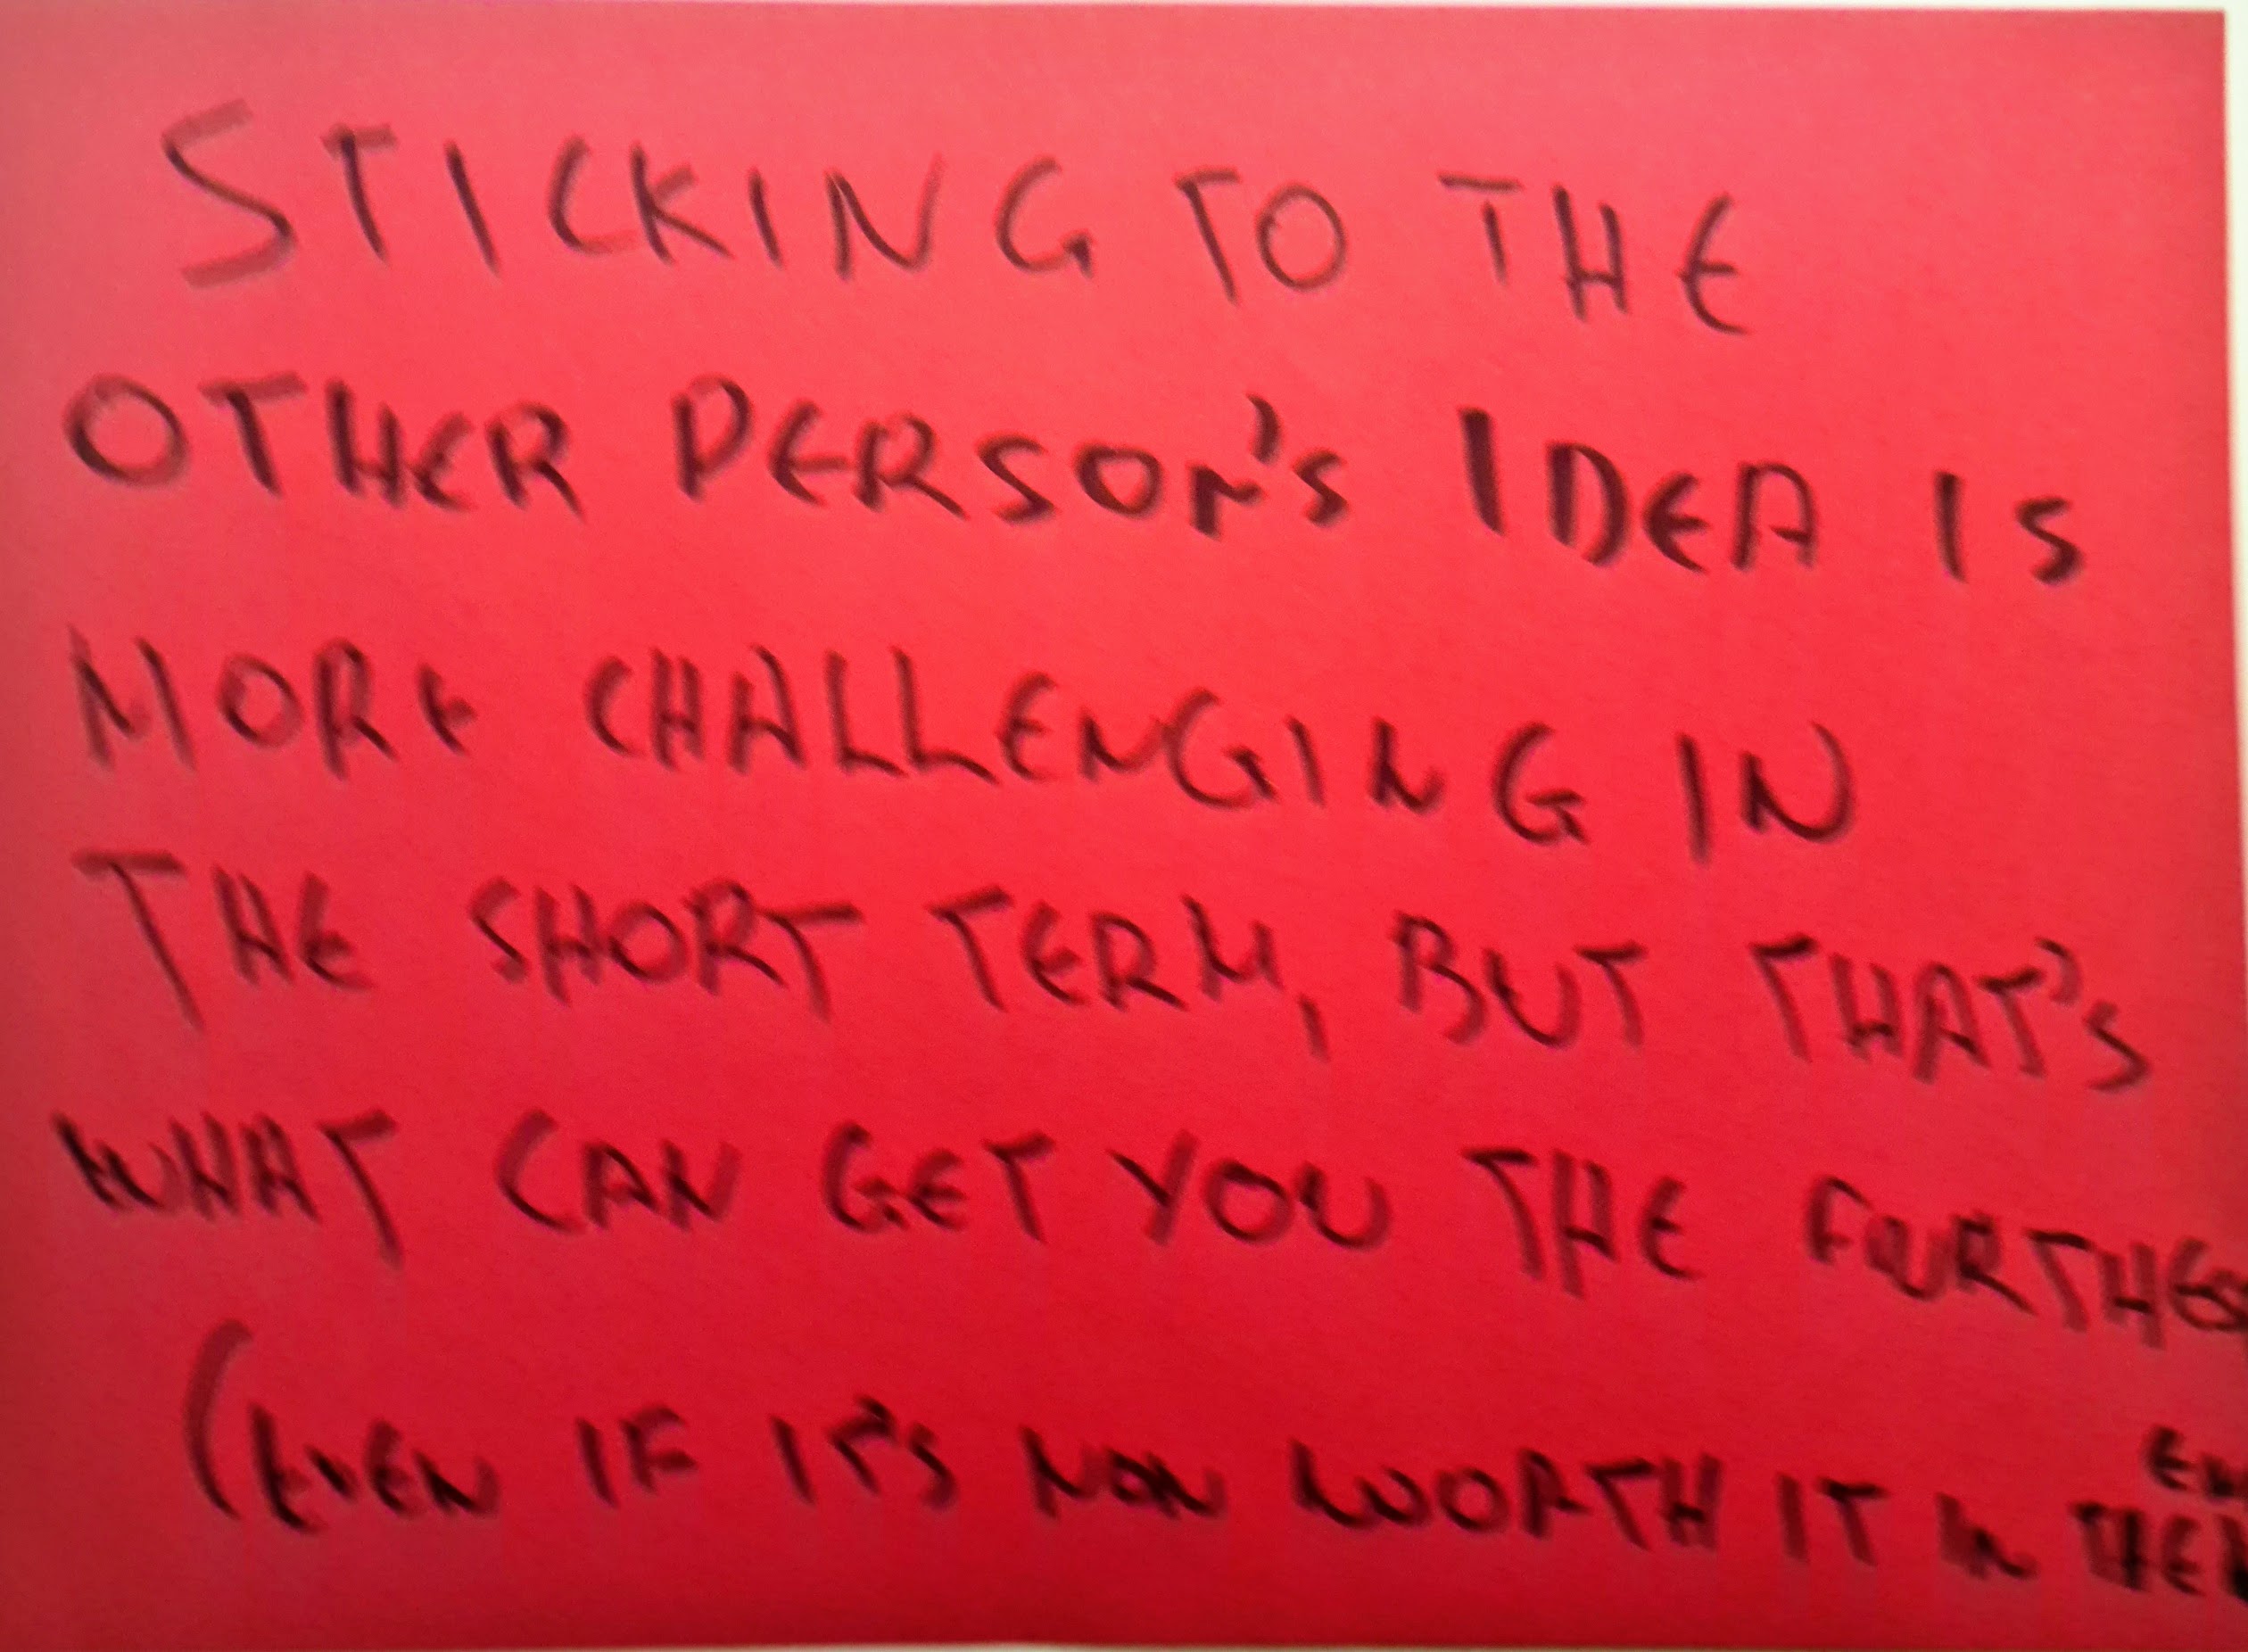 STICKING TO THE
OTHER PERSON'S IDEA IS
MORE CHALLENGING IN
THE SHORT TERM, BUT THAT'S
WHAT CAN GET YOU THE
(EVEN IF IT'S NON WORTH IT IN THE